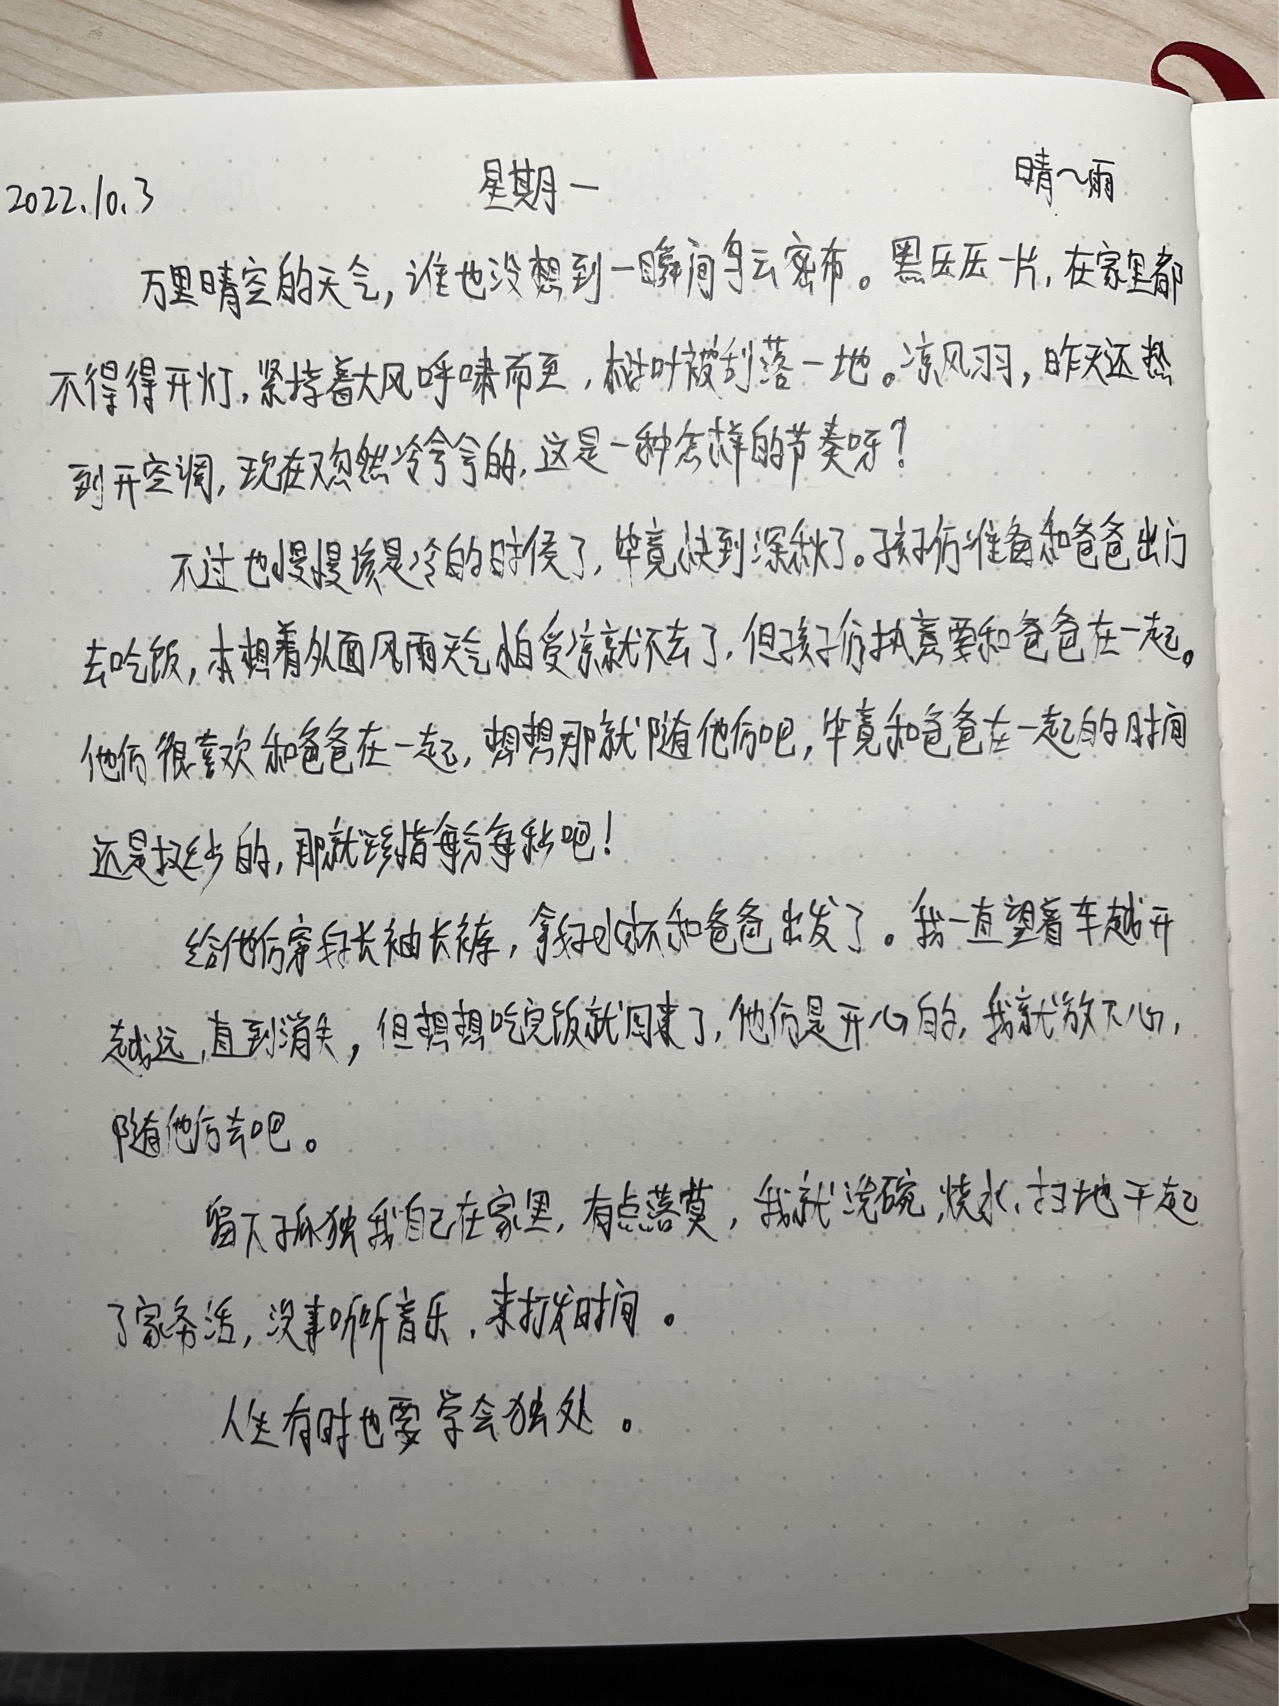 2022.10.3 星期一 晴~雨
万里晴空的天气，谁也没想到一瞬间乌云密布。黑压压一片，在家里都
不得得开灯，紧接着大风呼啸而至，树叶被刮落一地。凉风习，昨天还热
到开空调，现在又忽然冷兮兮的，这是一种怎样的节奏呀？
不过也慢慢该是冷的时候了，毕竟快到深秋了。孩子们准备和爸爸出门
去吃饭，本想着外面风雨天气怕受凉就不去了，但孩子们执意要和爸爸在一起。
他们很喜欢和爸爸在一起，想想那就随他们吧，毕竟和爸爸在一起的时间
还是极少的，那就珍惜每分每秒吧！
给他们穿好长袖长裤，拿好水杯和爸爸出发了。我一直望着车越开
越远，直到消失，但想想吃完饭就回来了，他们是开心的，我就放下心，
随他们去吧。
留下孤独我自己在家里，有点落莫，我就洗碗，烧水，扫地干起
了家务活，没事听听音乐，来打发时间。
人生有时也要学会独处。